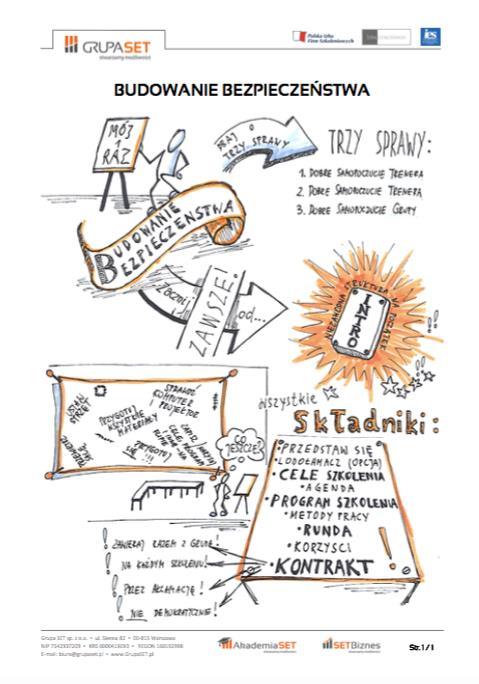 GRUPASET
stwarzamy możliwości
Polska Izba
Firm Szkoleniowych
ICS
BUDOWANIE BEZPIECZEŃSTWA
MÓJ
1
RAZ
DBAJ O
TRZY SPRAWY
TRZY SPRAWY:
1. DOBRE SAMOPOCZUCIE TRENERA
2. DOBRE SAMOPOCZUCIE TRENERA
3. DOBRE SAMOPOCZUCIE GRUPY
BUDOWANIE
BEZPIECZEŃSTWA
ZACZNIJ
ZAWSZE!
OD...
NIEŁAMLIWA STRUKTURA NA POCZĄTEK
INTRO
!!
!!
USIĄDŹ
SPRZĘT
SPRAWDŹ
KOMPUTER
I PROJEKTOR
PRZYGOTUJ
WSZYSTKIE
MATERIAŁY
ZAPISZ
CELE, PROGRAM
PRZYGOTUJ
SIĘ!!!
CO
JESZCZE?
WSZYSTKIE
SKŁADNIKI:
• PRZEDSTAW SIĘ
• LODOŁAMACZ (OPCJA)
• CELE SZKOLENIA
• AGENDA
• PROGRAM SZKOLENIA
• METODY PRACY
• RUNDA
• KORZYŚCI
• KONTRAKT
!
! ZAWIERAJ RAZEM Z GRUPĄ!
! NA KAŻDYM SZKOLENIU!
! PRZEZ AKLAMACJĘ!
! NIE DEMOKRATYCZNIE!
Grupa SET sp. z o.o. • ul. Sienna 82 • 00-815 Warszawa
NIP 7542937209 • KRS 0000419093 • REGON 160192998
E-mail: biuro@grupaset.pl • www.GrupaSET.pl
AkademiaSET
SETBiznes
Str.1/1